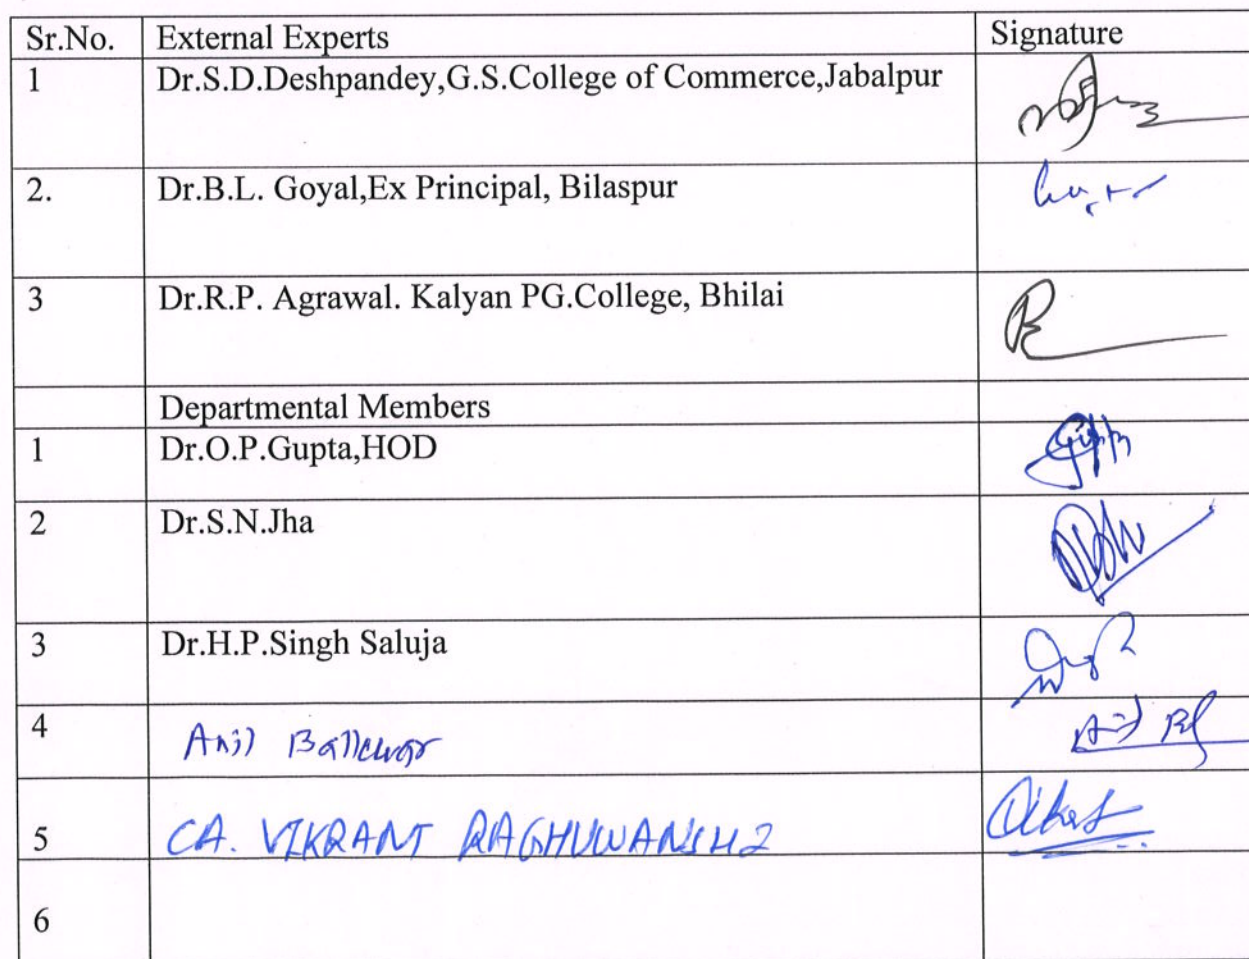 Sr.No. External Experts Signature
1 Dr.S.D.Deshpandey,G.S.College of Commerce,Jabalpur
2. Dr.B.L. Goyal,Ex Principal, Bilaspur
3 Dr.R.P. Agrawal. Kalyan PG.College, Bhilai
Departmental Members
1 Dr.O.P.Gupta,HOD Gupta
2 Dr.S.N.Jha
3 Dr.H.P.Singh Saluja
4 Anil
5 CA. VIKRANT RAGHUWANSHI
6